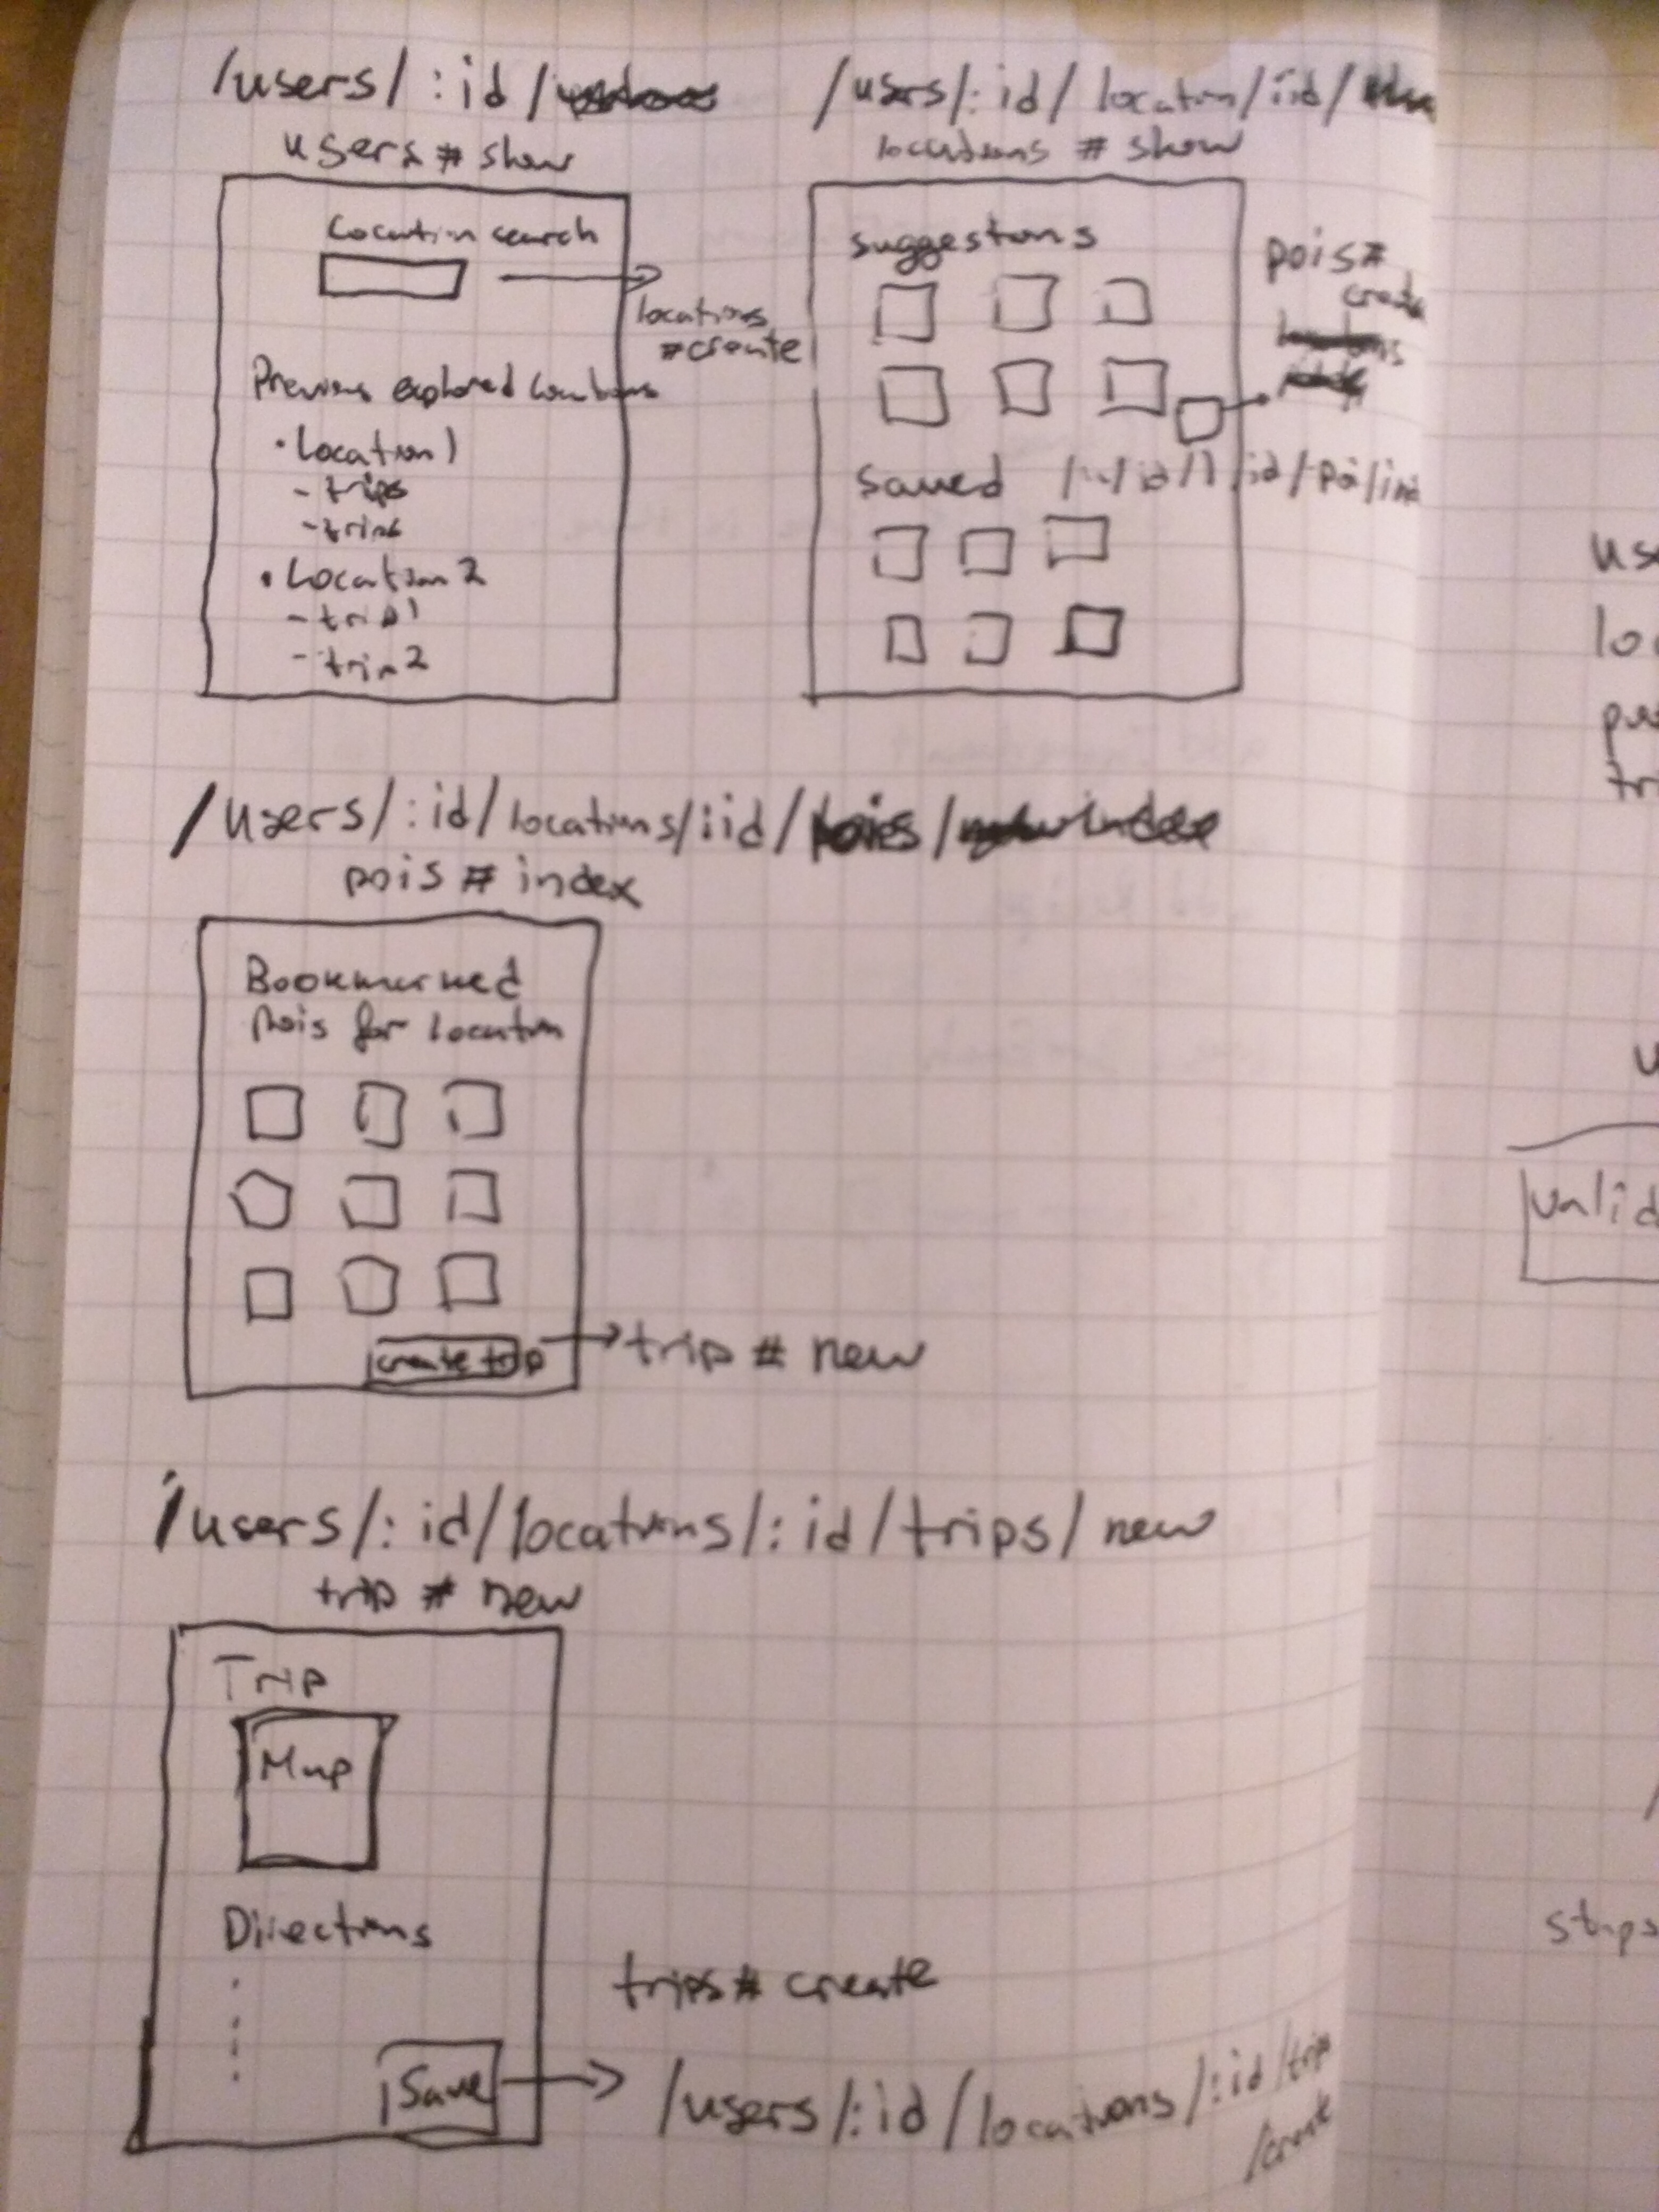 /users/:id/
users # show
Location search
locations
#create
Previous explored locations
• Location 1
- trips
- trips
• Location 2
- trip 1
- trip 2
/users/:id/location/:id/
locations # show
suggestions
pois#
create
Saved
/id/
/id/poi/ind
/users/:id/locations/:id/pois/
pois # index
Bookmarked
Pois for location
create trip
trip # new
/users/:id/locations/:id/trips/new
trip # new
Trip
Map
Directions
Save
trips# create
/users/:id/locations/:id/trip
/create
use
loc
tri
valid
steps